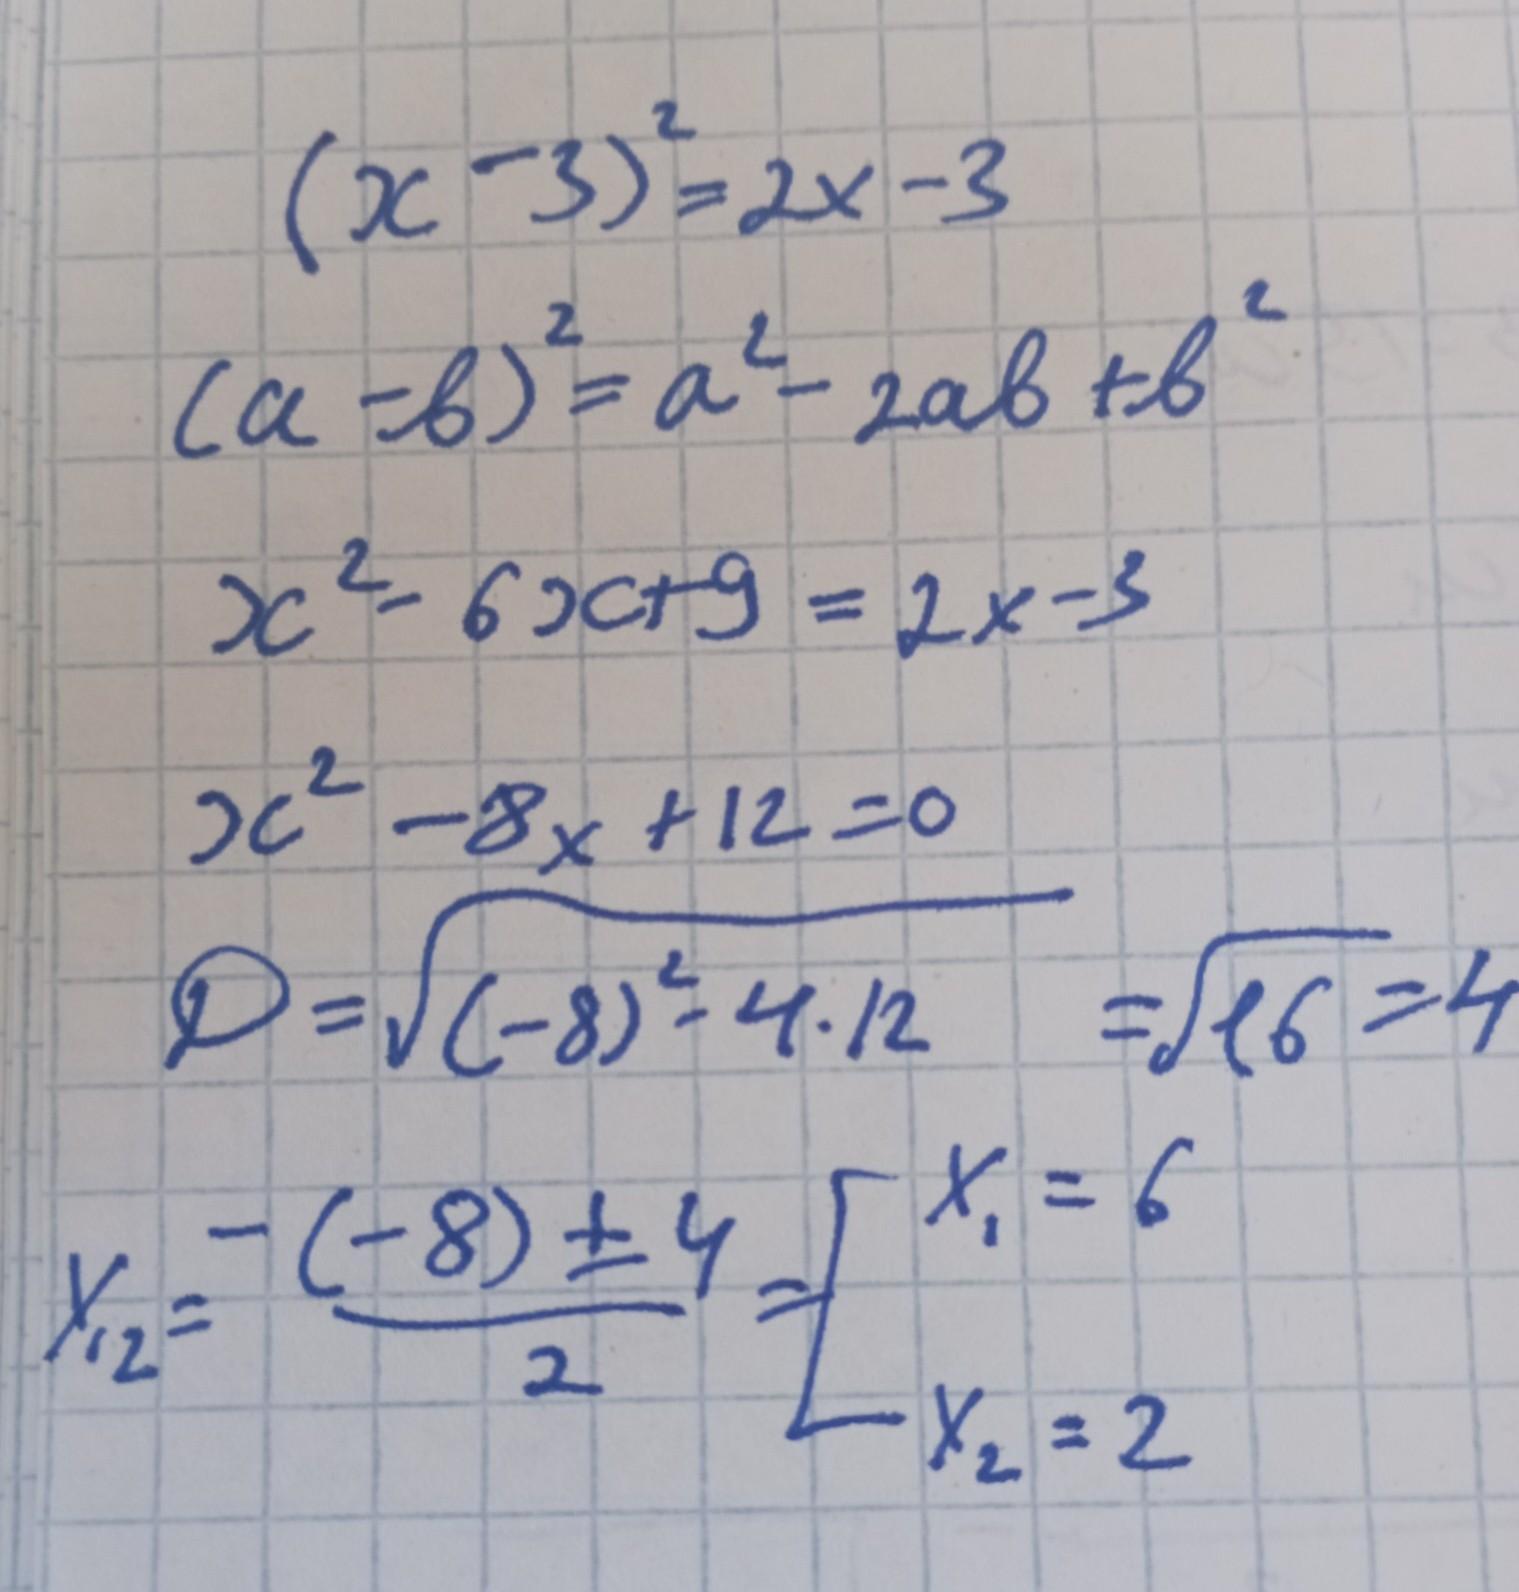 (x - 3)² = 2x - 3
(a - b)² = a² - 2ab + b²
x² - 6x + 9 = 2x - 3
x² - 8x + 12 = 0
D = √((-8)² - 4 · 12) = √16 = 4
X₁₂ = (-(-8) ± 4) / 2 = [ X₁ = 6
X₂ = 2